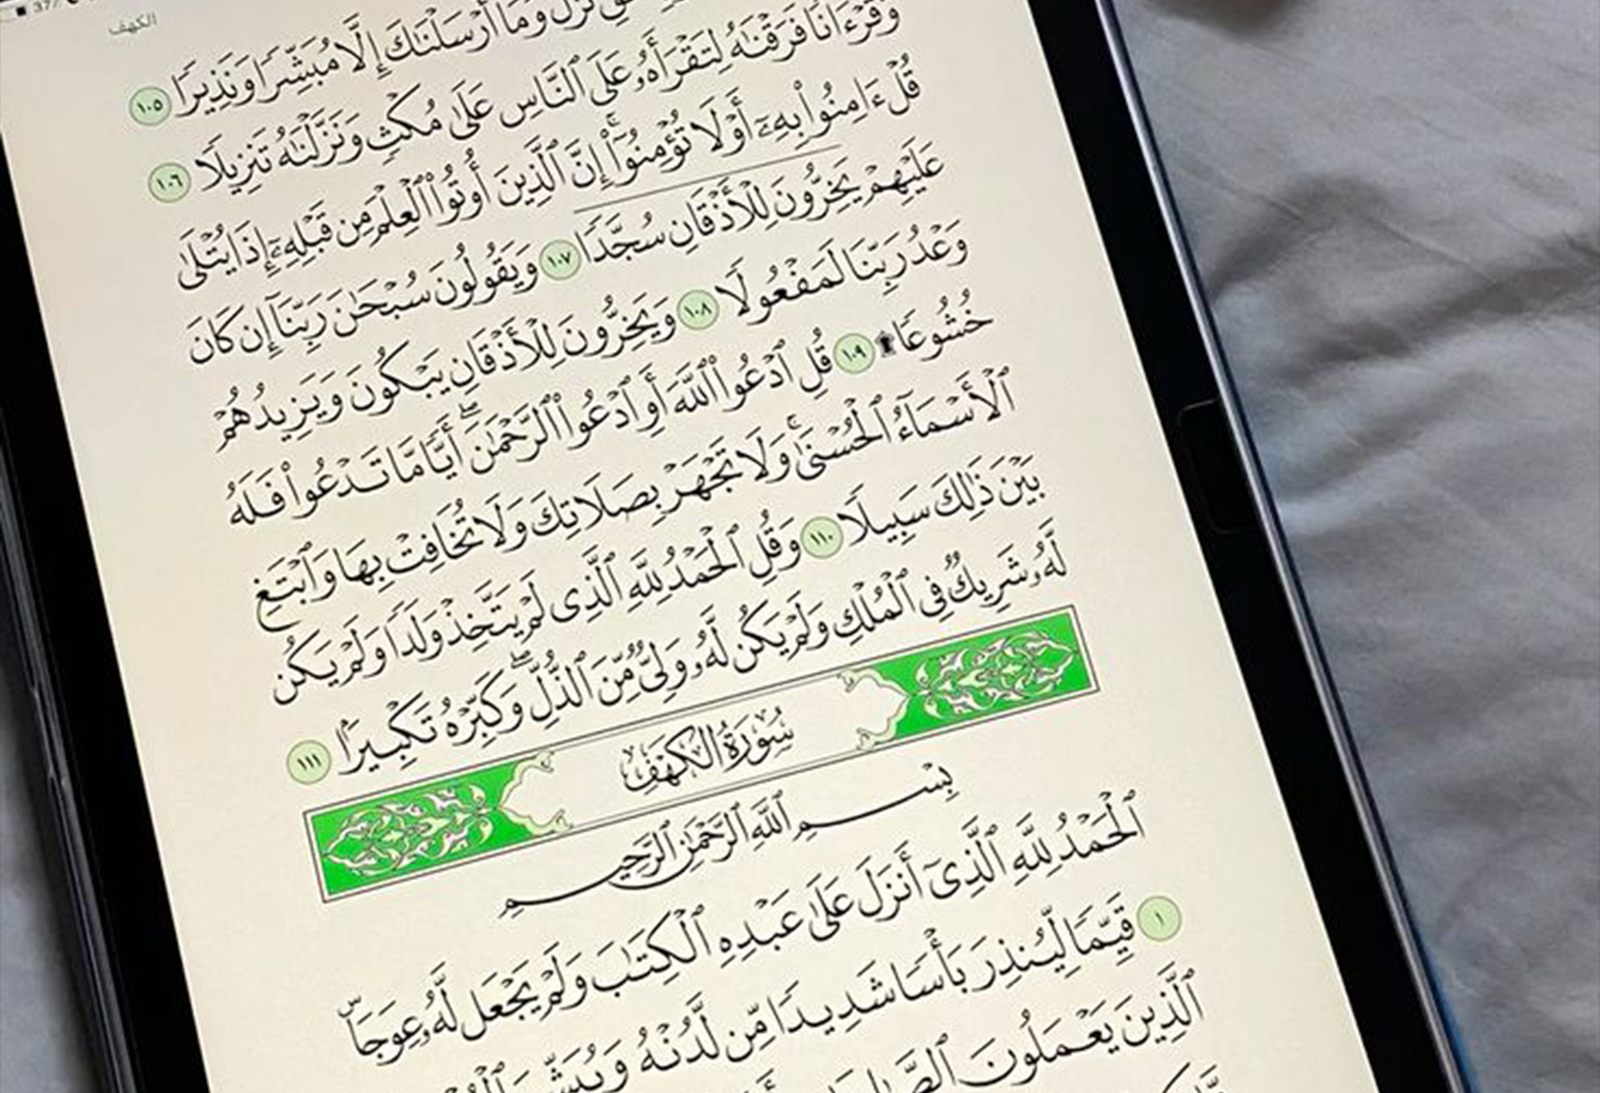 37%
الكهف
نَزَلَ وَمَآ أَرْسَلْنَٰكَ إِلَّا مُبَشِّرًا وَنَذِيرًا ١٠٥
وَقُرْءَانًا فَرَقْنَٰهُ لِتَقْرَأَهُۥ عَلَى ٱلنَّاسِ عَلَىٰ مُكْثٍ وَنَزَّلْنَٰهُ تَنزِيلًا ١٠٦
قُلْ ءَامِنُوا۟ بِهِۦٓ أَوْ لَا تُؤْمِنُوٓا۟ ۚ إِنَّ ٱلَّذِينَ أُوتُوا۟ ٱلْعِلْمَ مِن قَبْلِهِۦٓ إِذَا يُتْلَىٰ
عَلَيْهِمْ يَخِرُّونَ لِلْأَذْقَانِ سُجَّدًا ١٠٧ وَيَقُولُونَ سُبْحَٰنَ رَبِّنَآ إِن كَانَ
وَعْدُ رَبِّنَا لَمَفْعُولًا ١٠٨ وَيَخِرُّونَ لِلْأَذْقَانِ يَبْكُونَ وَيَزِيدُهُمْ
خُشُوعًا ۩ ١٠٩ قُلِ ٱدْعُوا۟ ٱللَّهَ أَوِ ٱدْعُوا۟ ٱلرَّحْمَٰنَ ۖ أَيًّا مَّا تَدْعُوا۟ فَلَهُ
ٱلْأَسْمَآءُ ٱلْحُسْنَىٰ ۚ وَلَا تَجْهَرْ بِصَلَاتِكَ وَلَا تُخَافِتْ بِهَا وَٱبْتَغِ
بَيْنَ ذَٰلِكَ سَبِيلًا ١١٠ وَقُلِ ٱلْحَمْدُ لِلَّهِ ٱلَّذِى لَمْ يَتَّخِذْ وَلَدًا وَلَمْ يَكُن
لَّهُۥ شَرِيكٌ فِى ٱلْمُلْكِ وَلَمْ يَكُن لَّهُۥ وَلِىٌّ مِّنَ ٱلذُّلِّ ۖ وَكَبِّرْهُ تَكْبِيرًۢا ١١١
سُورَةُ الكَهْفِ
بِسْمِ ٱللَّهِ ٱلرَّحْمَٰنِ ٱلرَّحِيمِ
ٱلْحَمْدُ لِلَّهِ ٱلَّذِىٓ أَنزَلَ عَلَىٰ عَبْدِهِ ٱلْكِتَٰبَ وَلَمْ يَجْعَل لَّهُۥ عِوَجَا ۜ
١ قَيِّمًا لِّيُنذِرَ بَأْسًا شَدِيدًا مِّن لَّدُنْهُ وَيُبَشِّرَ
ٱلَّذِينَ يَعْمَلُونَ